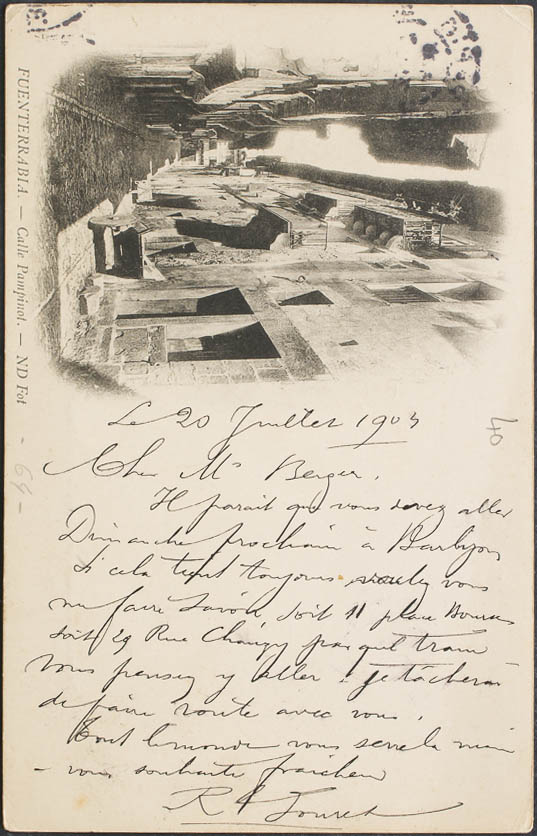 FUENTERRABIA. — Calle Pampinot. — ND Fot
64 -
40
Le 20 Juillet 1903
Cher Mr Berger,
Il parait que vous devez aller
Dimanche prochain à Barbizon
Si cela tient toujours, voulez vous
me faire savoir, soit 11 place Bourse
soit 29 Rue Chauzy par quel train
vous pensez y aller, je tâcherai
de faire route avec vous.
Tout le monde vous serre la main
- vous souhaite fraicheur